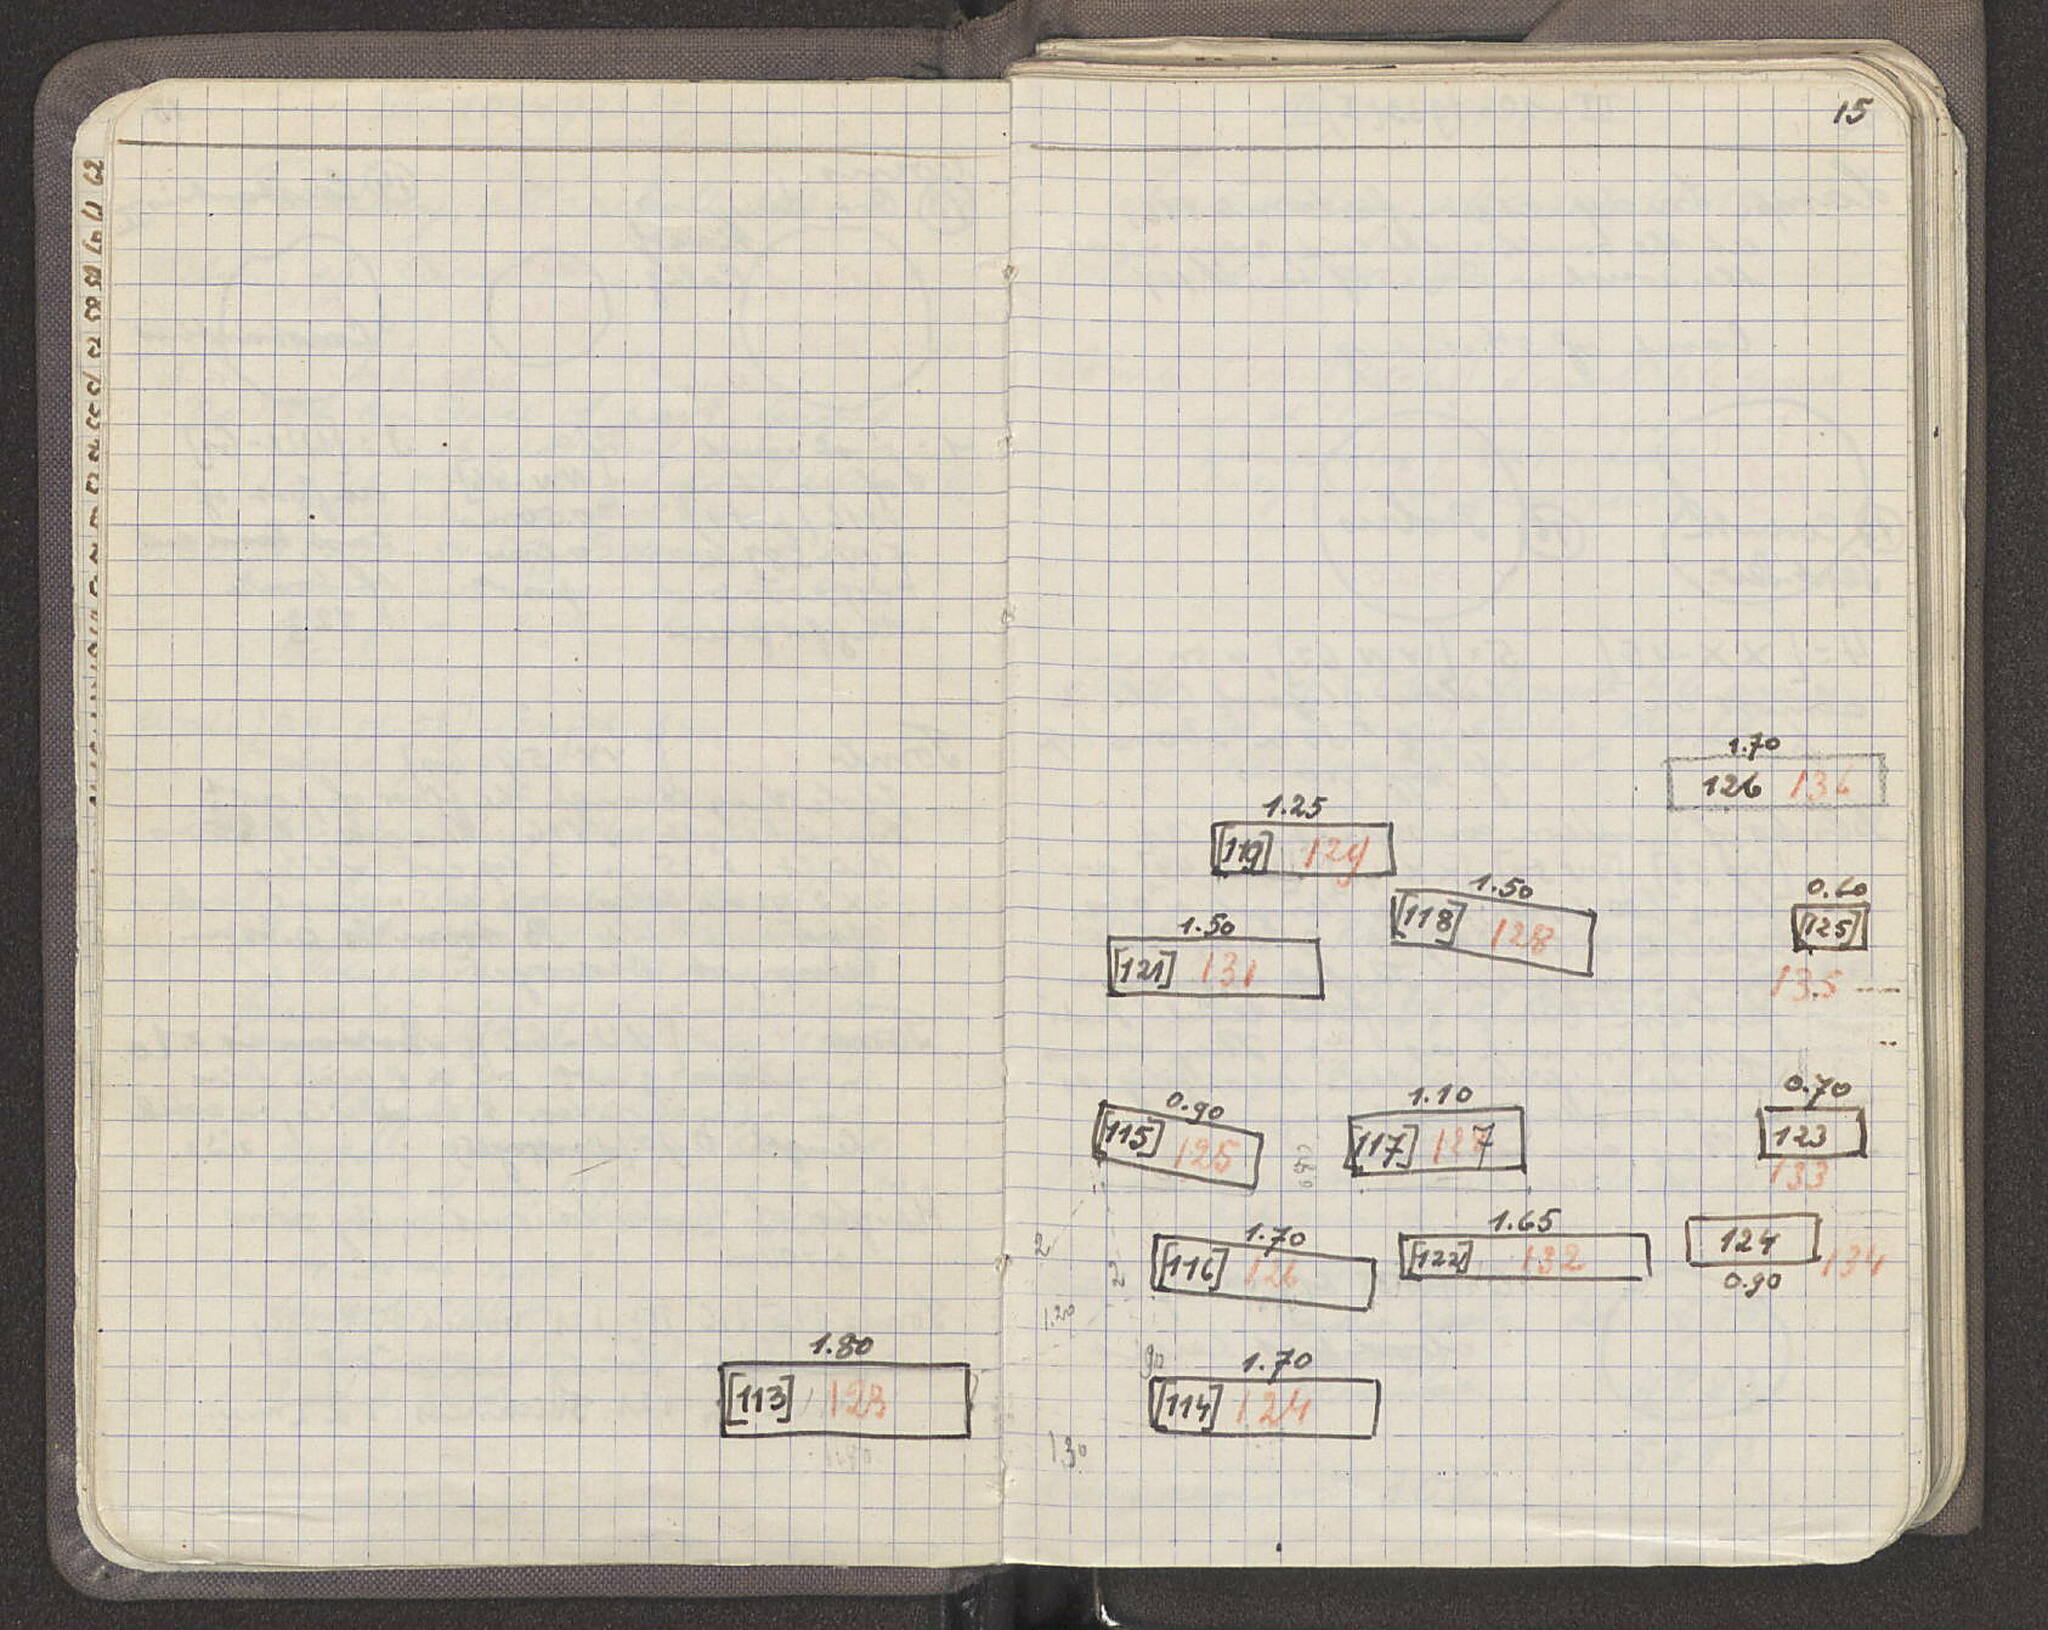 15
1.70
126 136
1.25
[119] 129
1.50
[118] 128
0.60
[125]
135
1.50
[121] 131
0.90
[115] 125
1.10
[117] 127
0.70
123
133
1.70
[116] 126
1.65
[122] 132
124 134
0.90
2
2
1.20
1.80
[113] 123
90
1.70
[114] 124
130